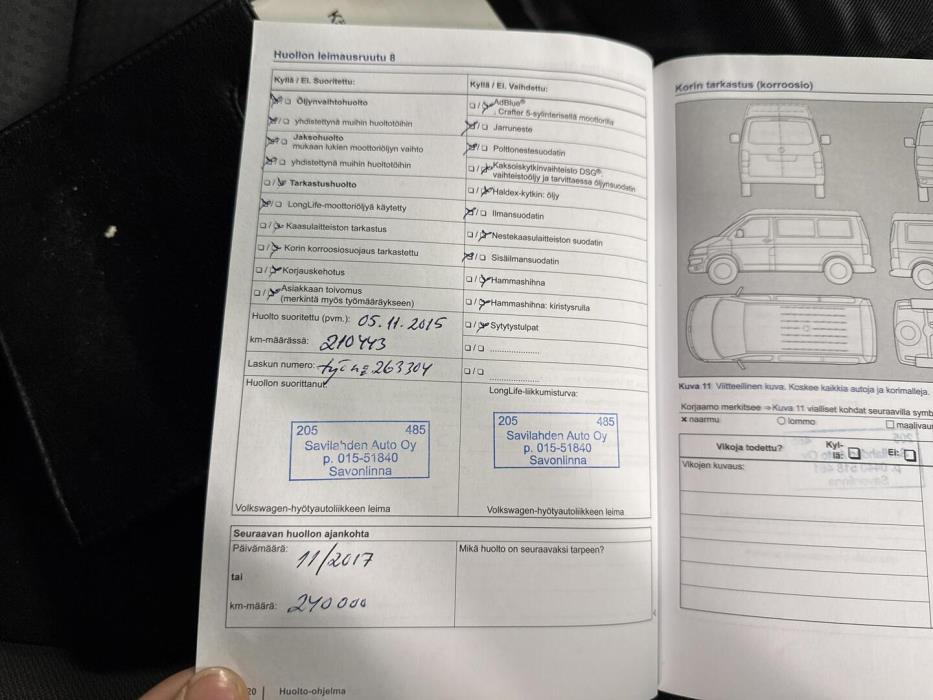 Huollon leimausruutu 8
Kyllä / Ei. Suoritettu:
Öljynvaihtohuolto
yhdistettynä muihin huoltotöihin
Jaksohuolto
mukaan lukien moottoriöljyn vaihto
yhdistettynä muihin huoltotöihin
Tarkastushuolto
LongLife-moottoriöljyä käytetty
Kaasulaitteiston tarkastus
Korin korroosiosuojaus tarkastettu
Korjauskehotus
Asiakkaan toivomus
(merkintä myös työmääräykseen)
Huolto suoritettu (pvm.): 05.11.2015
km-määrässä: 210443
Laskun numero: 263304
Huollon suorittanut:
205 485
Savilahden Auto Oy
p. 015-51840
Savonlinna
Volkswagen-hyötyautoliikkeen leima
Kyllä / Ei. Vaihdettu:
AdBlue®
, Crafter 5-sylinterisellä moottorilla
Jarruneste
Polttonestesuodatin
Kaksoiskytkinvaihteisto DSG®:
vaihteistoöljy ja tarvittaessa öljynsuodatin
Haldex-kytkin: öljy
Ilmansuodatin
Nestekaasulaitteiston suodatin
Sisäilmansuodatin
Hammashihna
Hammashihna: kiristysrulla
Sytytystulpat
LongLife-liikkumisturva:
205 485
Savilahden Auto Oy
p. 015-51840
Savonlinna
Volkswagen-hyötyautoliikkeen leima
Seuraavan huollon ajankohta
Päivämäärä: 11/2017
tai
km-määrä: 240 000
Mikä huolto on seuraavaksi tarpeen?
20 | Huolto-ohjelma
Korin tarkastus (korroosio)
Kuva 11 Viitteellinen kuva. Koskee kaikkia autoja ja korimalleja.
Korjaamo merkitsee ⇒ Kuva 11 vialliset kohdat seuraavilla symb
x naarmu
lommo
maalivaur
Vikoja todettu?
Kyl-
lä:
Ei:
Vikojen kuvaus: